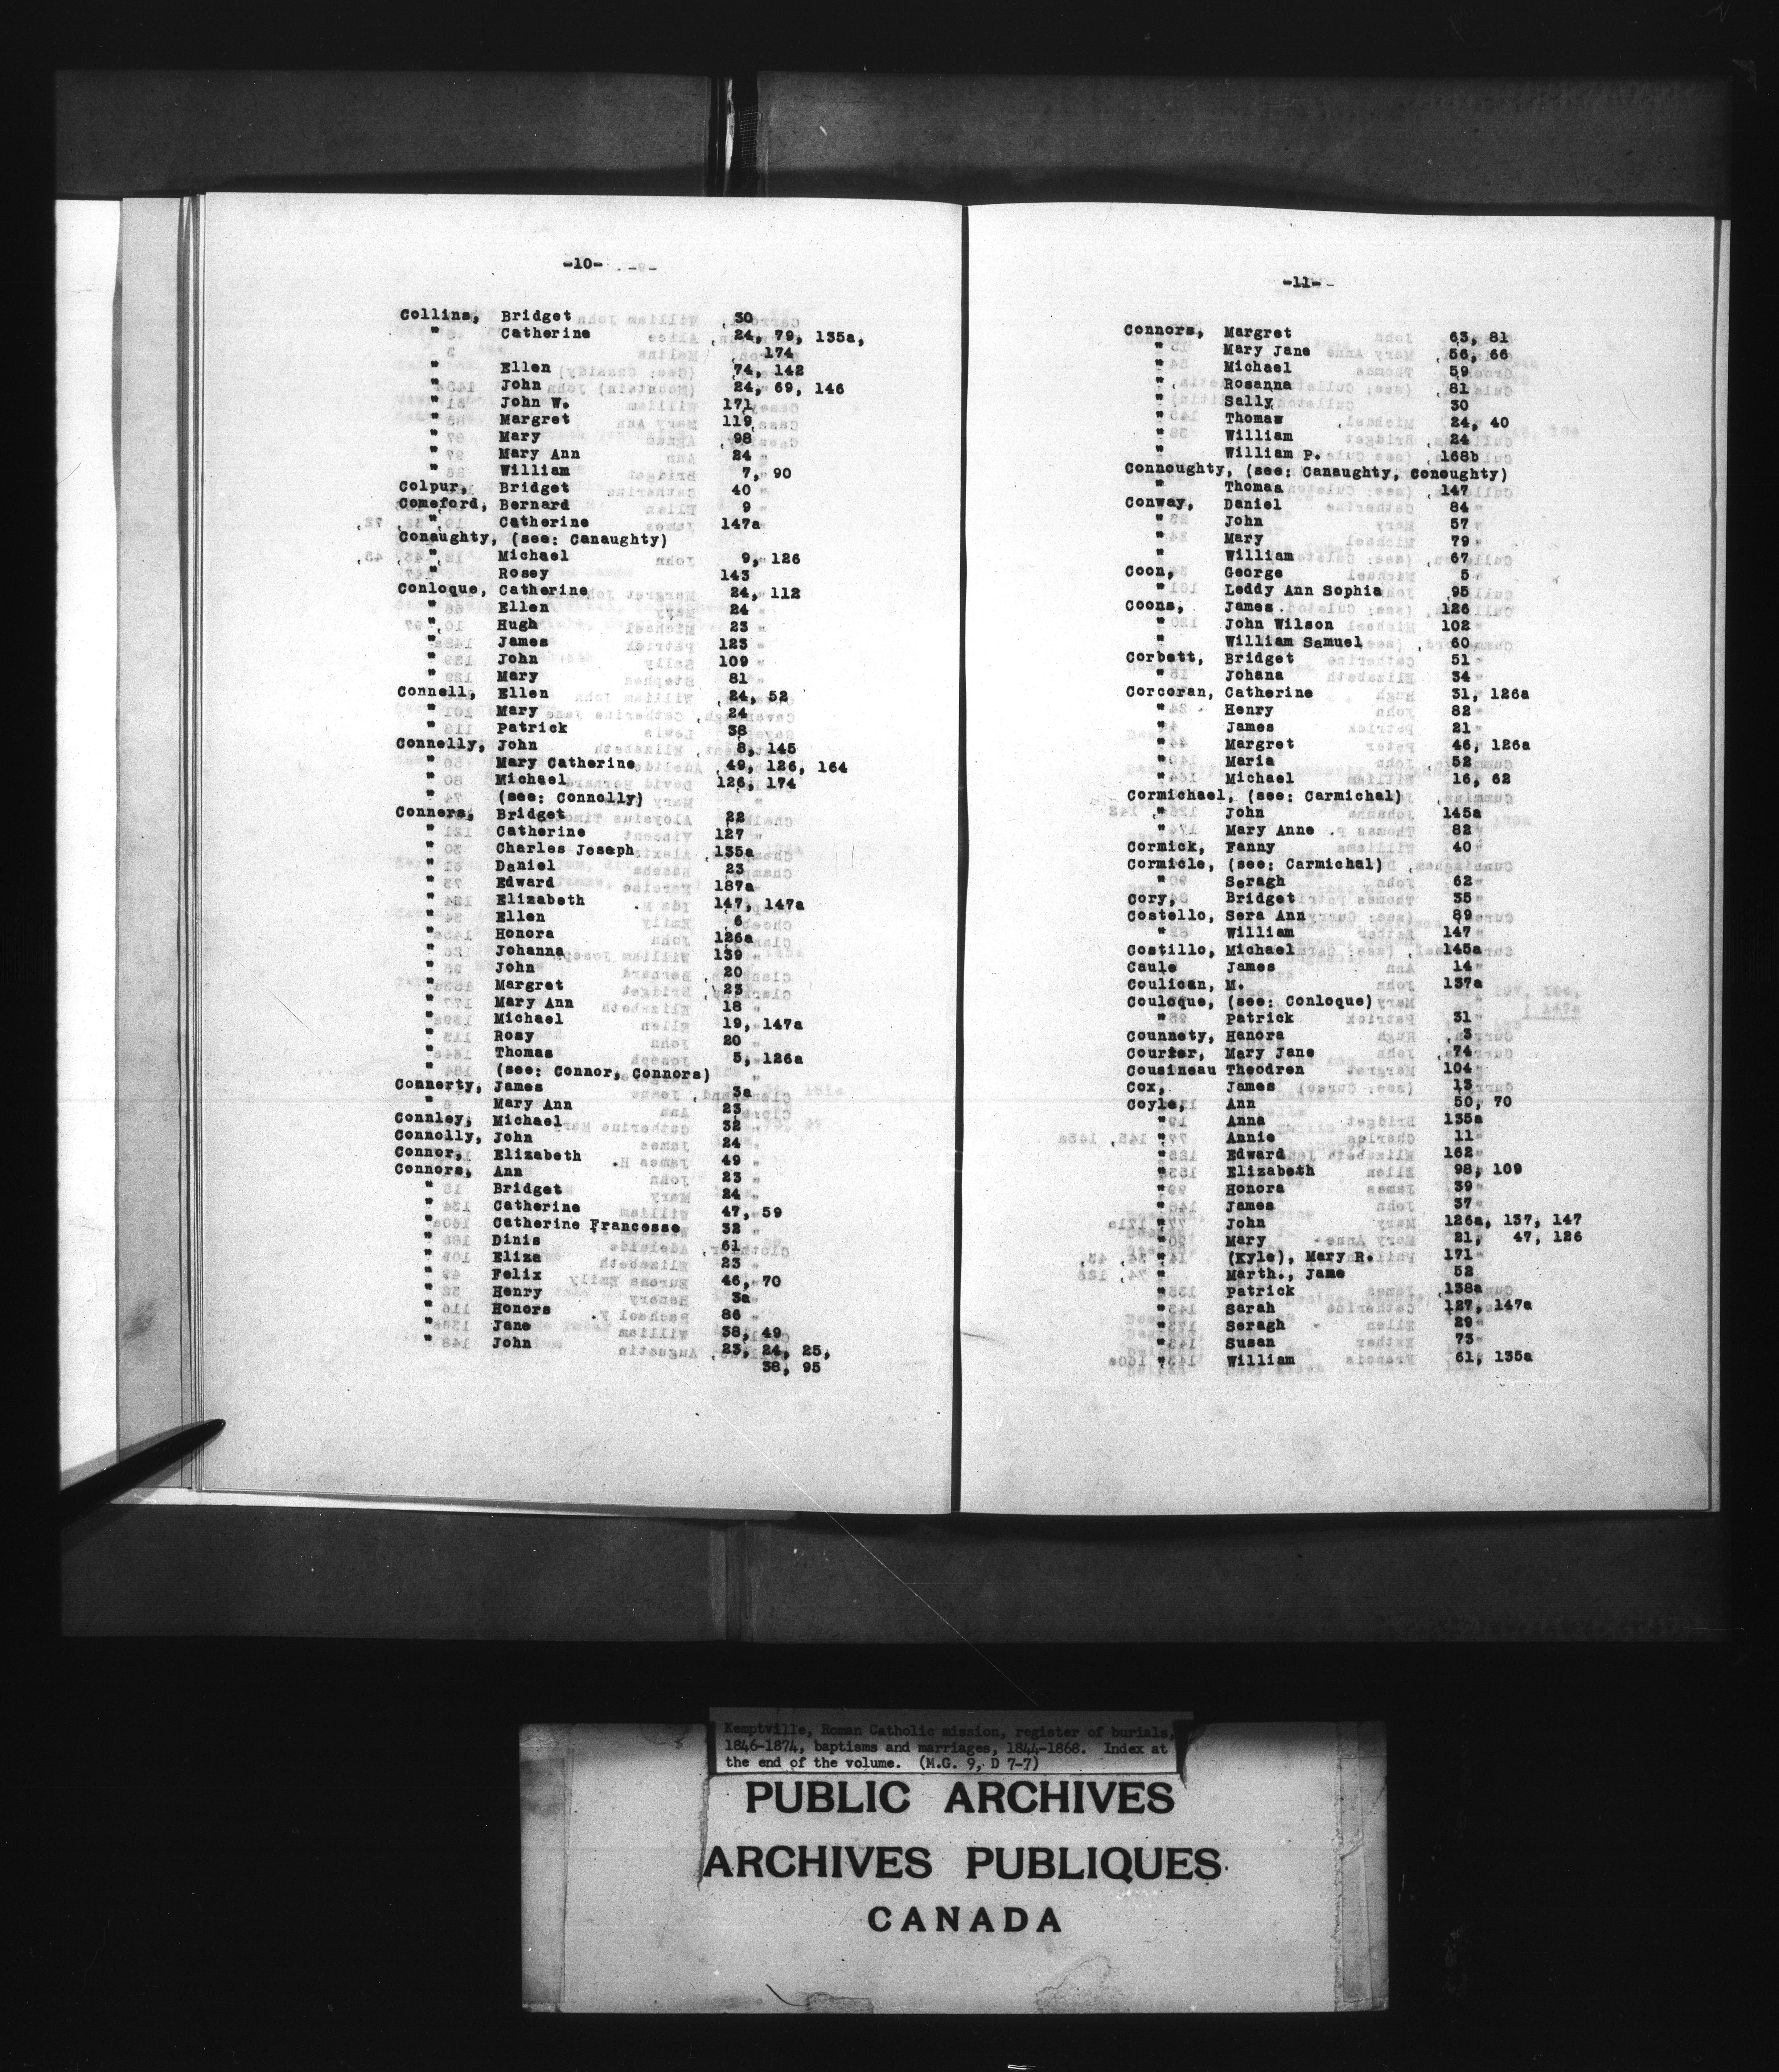 -10-
Collins, Bridget 30
" Catherine 24, 79, 135a,
174
" Ellen 74, 142
" John 24, 69, 146
" John W. 171
" Margret 119
" Mary 98
" Mary Ann 24
" William 7, 90
Colpur, Bridget 40
Comeford, Bernard 9
" Catherine 147a
Conaughty, (see: Canaughty)
" Michael 9, 126
" Rosey 143
Conloque, Catherine 24, 112
" Ellen 24
" Hugh 23
" James 123
" John 109
" Mary 81
Connell, Ellen 24, 52
" Mary 24
" Patrick 38
Connelly, John 8, 145
" Mary Catherine 49, 126, 164
" Michael 126, 174
" (see: Connolly)
Conners, Bridget 22
" Catherine 127
" Charles Joseph 135a
" Daniel 23
" Edward 187a
" Elizabeth 147, 147a
" Ellen 6
" Honora 126a
" Johanna 139
" John 20
" Margret 23
" Mary Ann 18
" Michael 19, 147a
" Rosy 20
" Thomas 5, 126a
" (see: Connor, Connors)
Connerty, James 3a
" Mary Ann 23
Connley, Michael 32
Connolly, John 24
Connor, Elizabeth 49
Connors, Ann 23
" Bridget 24
" Catherine 47, 59
" Catherine Francesse 32
" Dinis 61
" Eliza 23
" Felix 46, 70
" Henry 3a
" Honora 86
" Jane 38, 49
" John 23, 24, 25,
38, 95
-11-
Connors, Margret 63, 81
" Mary Jane 56, 66
" Michael 59
" Rosanna 81
" Sally 30
" Thomaw 24, 40
" William 24
" William P. 168b
Connoughty, (see: Canaughty, Conoughty)
" Thomas 147
Conway, Daniel 84
" John 57
" Mary 79
" William 67
Coon, George 5
" Leddy Ann Sophia 95
Coons, James 126
" John Wilson 102
" William Samuel 60
Corbett, Bridget 51
" Johana 34
Corcoran, Catherine 31, 126a
" Henry 82
" James 21
" Margret 46, 126a
" Maria 52
" Michael 16, 62
Cormichael, (see: Carmichal)
" John 145a
" Mary Anne 82
Cormick, Fanny 40
Cormicle, (see: Carmichal)
" Seragh 62
Cory, Bridget 35
Costello, Sera Ann 89
" William 147
Costillo, Michael 145a
Caule James 14
Coulican, M. 137a
Couloque, (see: Conloque)
" Patrick 31
Counnety, Hanora 3
Courier, Mary Jane 74
Cousineau Theodren 104
Cox, James 13
Coyle, Ann 50, 70
" Anna 135a
" Annie 11
" Edward 162
" Elizabeth 98, 109
" Honora 39
" James 37
" John 126a, 137, 147
" Mary 21, 47, 126
" (Kyle), Mary R. 171
" Marth., Jane 52
" Patrick 138a
" Sarah 127, 147a
" Seragh 29
" Susan 73
" William 61, 135a
Kemptville, Roman Catholic mission, register of burials,
1846-1874, baptisms and marriages, 1844-1868. Index at
the end of the volume. (M.G. 9, D 7-7)
PUBLIC ARCHIVES
ARCHIVES PUBLIQUES
CANADA